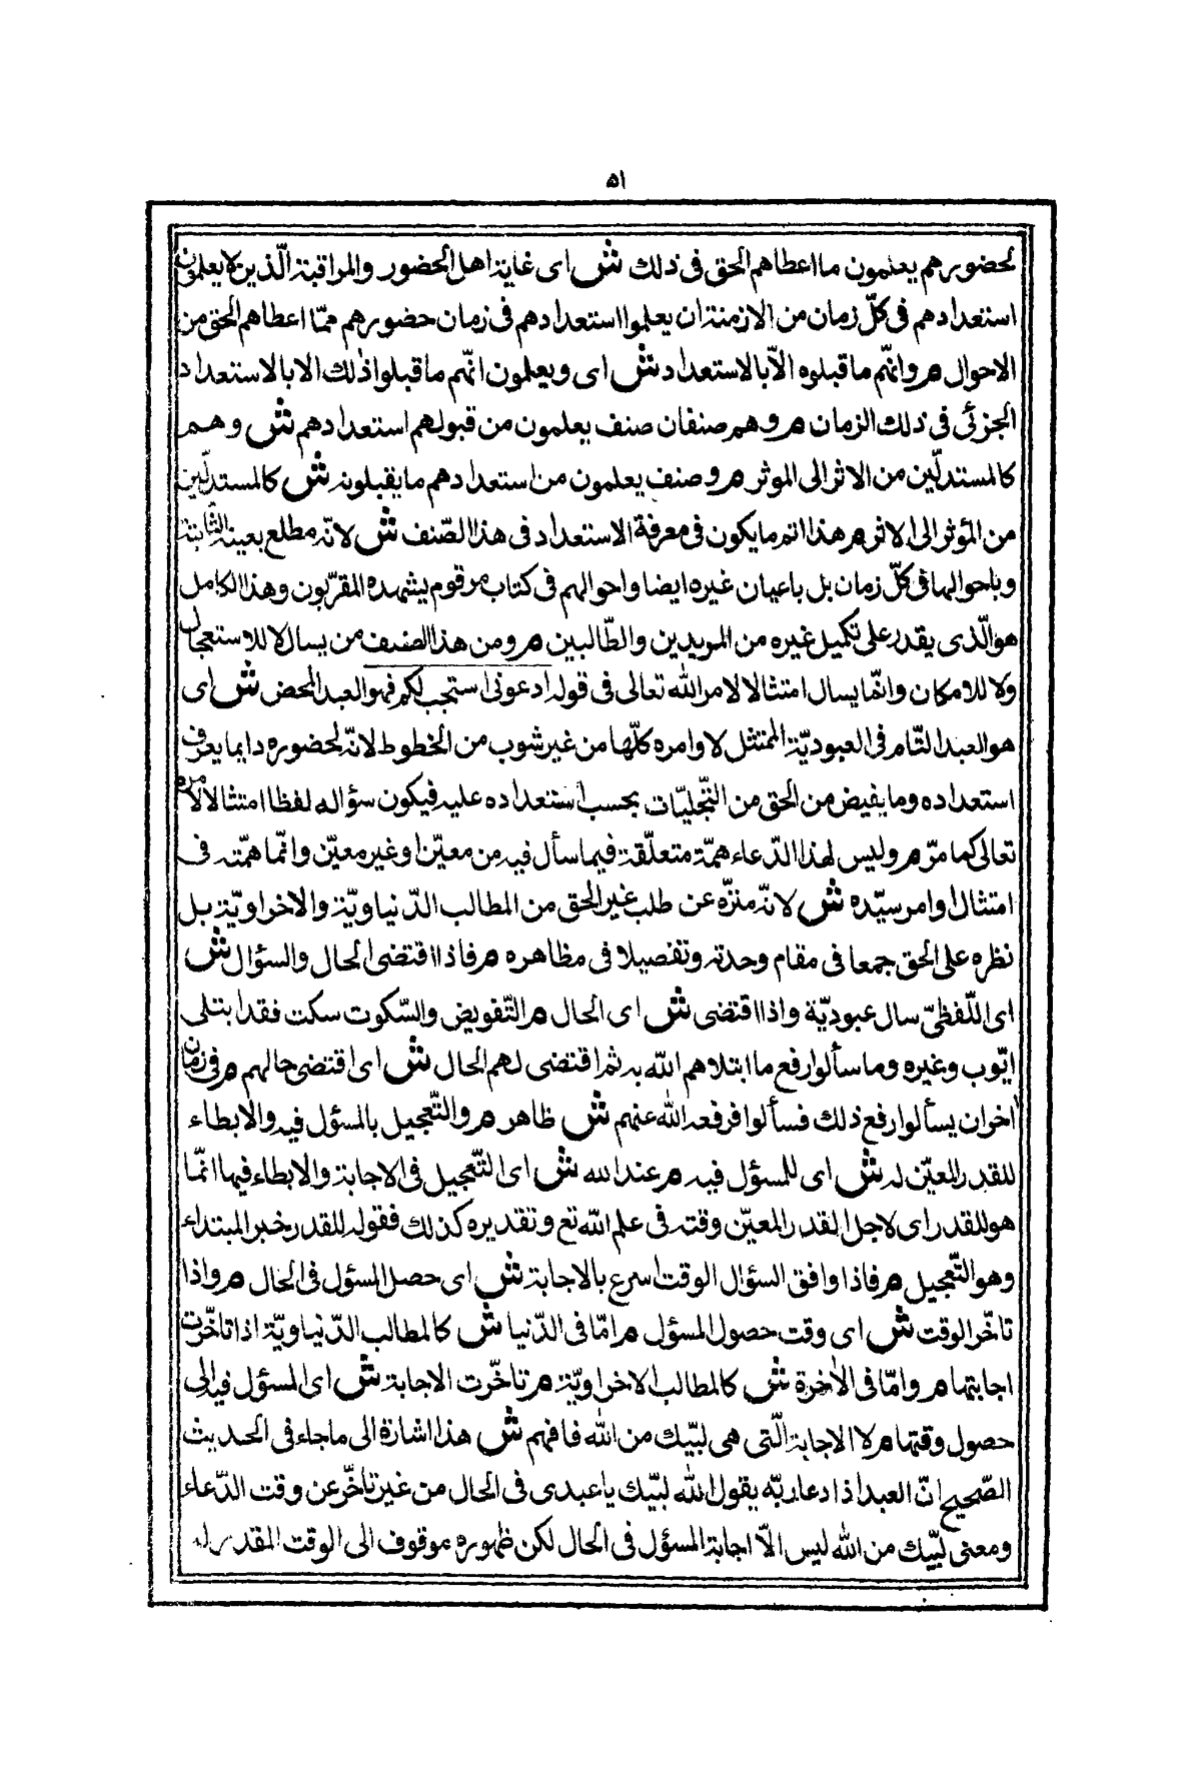 ٥١
لحضورهم يعلمون ما اعطاهم الحق فى ذلك ش اى غاية اهل الحضور والمراقبة الّذين لا يعلمون
استعدادهم فى كلّ زمان من الازمنة ان يعلموا استعدادهم فى زمان حضورهم ممّا اعطاهم الحق من
الاحوال م وانّهم ما قبلوه الاّ بالاستعداد ش اى ويعلمون انّهم ما قبلوا ذلك الا بالاستعداد
الجزئى فى ذلك الزمان م وهم صنفان صنف يعلمون من قبولهم استعدادهم ش وهم
كالمستدلّين من الاثر الى الموثر م وصنف يعلمون من استعدادهم ما يقبلونه ش كالمستدلّين
من المؤثر الى الاثر م هذا اتم ما يكون فى معرفة الاستعداد فى هذا الصّنف ش لانّه مطلع بعينه الثّابتة
وباحوالها فى كلّ زمان بل باعيان غيره ايضا واحوالهم فى كتاب مرقوم يشهده المقرّبون وهذا الكامل
هو الّذى يقدر على تكميل غيره من المريدين والطّالبين م ومن هذا الصنف من يسال لا للاستعجال
ولا للامكان وانّما يسال امتثالا لامر الله تعالى فى قوله ادعونى استجب لكم فهو العبد المحض ش اى
هو العبد التّام فى العبوديّة الممتثل لاوامره كلّها من غير شوب من الحظوظ لانّه لحضوره دايما يعرف
استعداده وما يفيض من الحق من التّجليّات بحسب استعداده عليه فيكون سؤاله لفظا امتثالا لامره
تعالى كما مرّ م وليس لهذا الدّعاء همّة متعلّقة فيما سأل فيه من معيّن او غير معيّن وانّما همّته فى
امتثال اوامر سيّده ش لانّه منزّه عن طلب غير الحق من المطالب الدّنياويّة والاخراويّة بل
نظره على الحق جمعا فى مقام وحدته وتفصيلا فى مظاهره م فاذا اقتضى الحال والسؤال ش
اى اللّفظىّ سال عبوديّة واذا اقتضى ش اى الحال م التّفويض والسّكوت سكت فقد ابتلى
ايّوب وغيره وما سألوا رفع ما ابتلاهم الله به ثم اقتضى لهم الحال ش اى اقتضى حالهم م فى زمان
اخر ان يسألوا رفع ذلك فسألوا فرفعه الله عنهم ش ظاهر م والتّعجيل بالمسؤل فيه والابطاء
للقدر المعيّن له ش اى للمسؤل فيه م عند الله ش اى التّعجيل فى الاجابة والابطاء فيها انّما
هو للقدر اى لاجل القدر المعيّن وقته فى علم الله تع وتقديره كذلك فقوله للقدر خبر المبتداء
وهو التّعجيل م فاذا وافق السؤال الوقت اسرع بالاجابة ش اى حصل المسؤل فى الحال م واذا
تاخّر الوقت ش اى وقت حصول المسؤل م امّا فى الدّنيا ش كالمطالب الدّنياويّة اذا تاخّرت
اجابتها م وامّا فى الاخرة ش كالمطالب الاخراويّة م تاخّرت الاجابة ش اى المسؤل فيه الى
حصول وقتها م لا الاجابة الّتى هى لبّيك من الله فافهم ش هذا اشارة الى ما جاء فى الحديث
الصّحيح انّ العبد اذا دعا ربّه يقول الله لبّيك يا عبدى فى الحال من غير تاخّر عن وقت الدّعاء
ومعنى لبّيك من الله ليس الاّ اجابة المسؤل فى الحال لكن ظهوره موقوف الى الوقت المقدر له